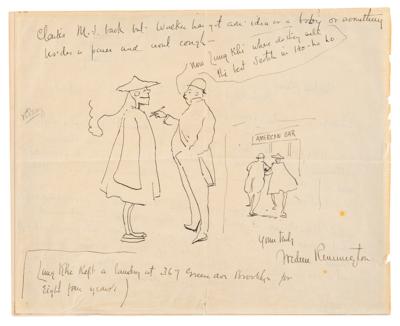 Clarke's M.S. back but Wacker has got an idea in a baby or something
besides a pause and wont cough —
now Lung Khi where do they sell
the best Scotch in Ho-ho-ho
AMERICAN BAR
Yours truly
Frederic Remington
Lung Khi kept a laundry at 367 Greene ave Brooklyn for
eight four years)